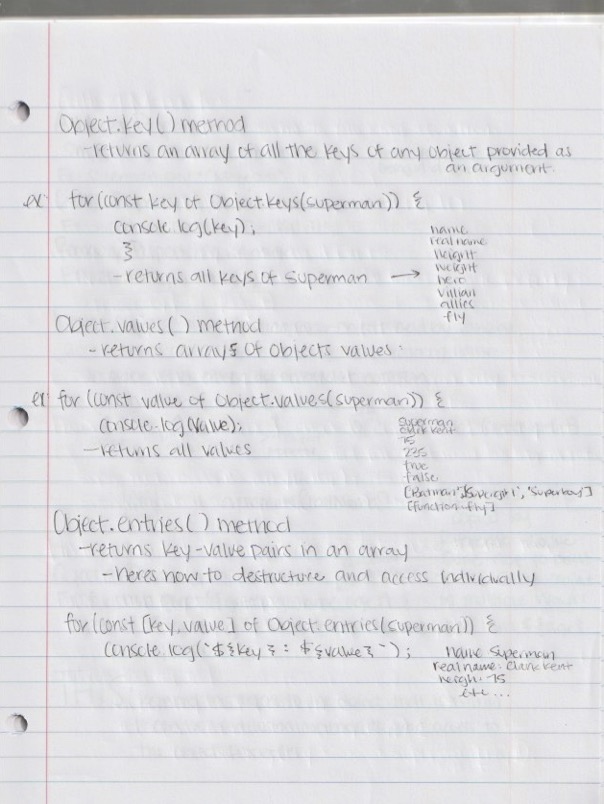 Object.key() method
-returns an array of all the keys of any object provided as
an argument.
ex for (const key of Object.keys(superman)) {
console.log(key);
}
-returns all keys of superman →
name
real name
height
weight
hero
villian
allies
fly
Object.values() method
-returns arrays of objects values.
ex for (const value of Object.values(superman)) {
console.log(value);
-returns all values
superman
clark kent
75
235
true
false
['Batman', 'Supergirl', 'Superboy']
[function: fly]
Object.entries() method
-returns key-value pairs in an array
-heres how to destructure and access individually
for (const [key, value] of Object.entries(superman)) {
console.log(`${key}: ${value}`);
name Superman
real name: Clark Kent
height: 75
etc...